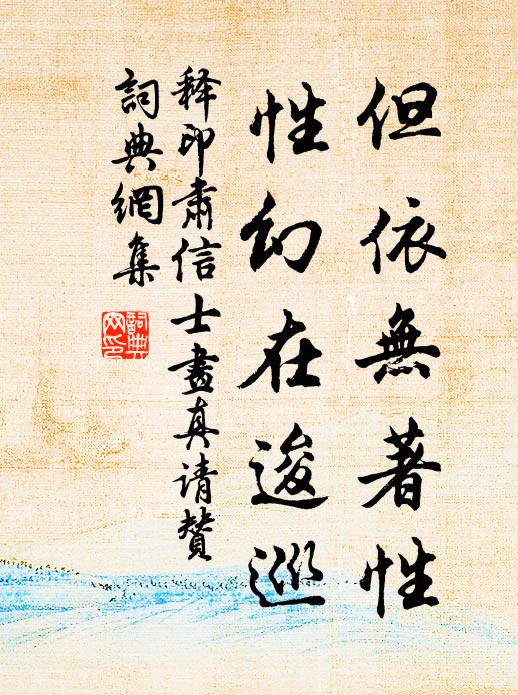 但依無著性
性幻在逡巡
释印肅信士畫真请赞
詞典網集
詞典網印